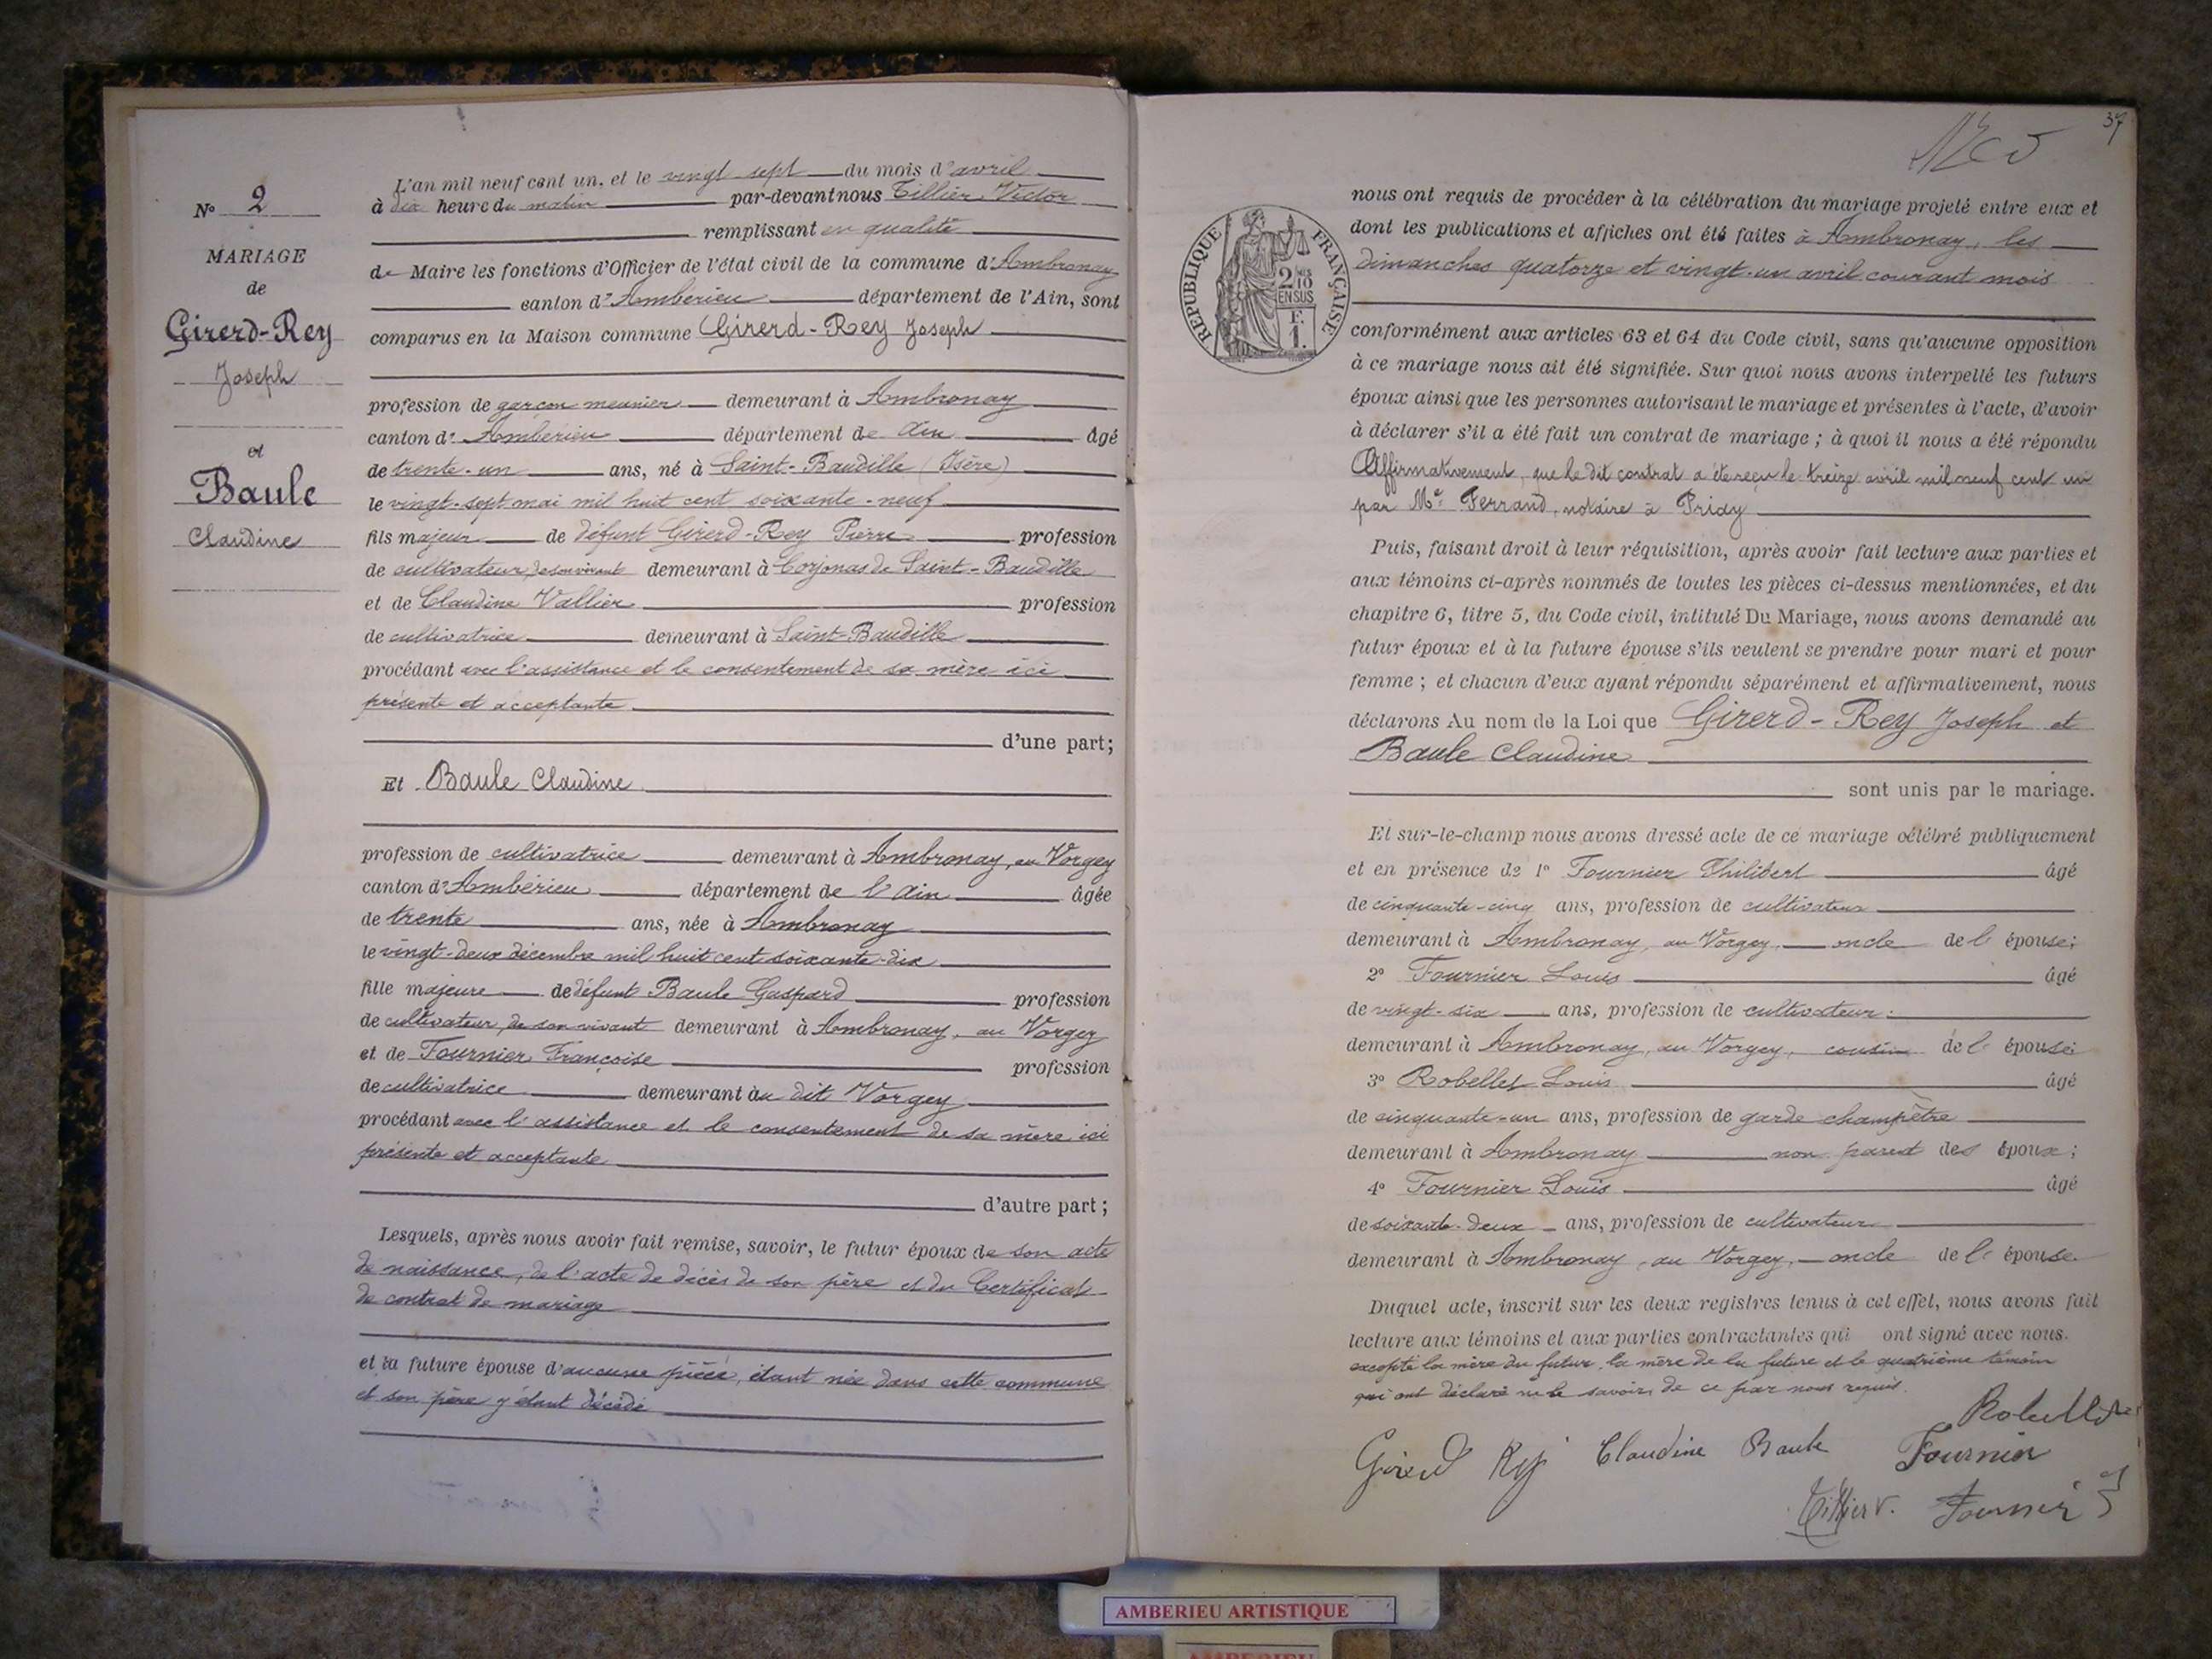 N° 2
MARIAGE
de
Girerd-Rey
Joseph
et
Baule
Claudine
L'an mil neuf cent un, et le vingt-sept du mois d'avril
à dix heure du matin par-devant nous Tillier Victor
remplissant en qualité
de Maire les fonctions d'Officier de l'état civil de la commune d'Ambronay
canton d'Ambérieu département de l'Ain, sont
comparus en la Maison commune Girerd-Rey Joseph
profession de garçon meunier demeurant à Ambronay
canton d'Ambérieu département de Ain âgé
de trente-un ans, né à Saint-Baudille (Isère)
le vingt-sept mai mil huit cent soixante-neuf
fils majeur de défunt Girerd-Rey Pierre profession
de cultivateur, de son vivant demeurant à de Saint-Baudille
et de Claudine Vallier profession
de cultivatrice demeurant à Saint-Baudille
procédant avec l'assistance et le consentement de sa mère ici
présente et acceptante
d'une part;
Et Baule Claudine
profession de cultivatrice demeurant à Ambronay, au Vorgey
canton d'Ambérieu département de l'Ain âgée
de trente ans, née à Ambronay
le vingt-deux décembre mil huit cent soixante-dix
fille majeure de défunt Baule Gaspard profession
de cultivateur, de son vivant demeurant à Ambronay, au Vorgey
et de Fournier Françoise profession
de cultivatrice demeurant au dit Vorgey
procédant avec l'assistance et le consentement de sa mère ici
présente et acceptante
d'autre part;
Lesquels, après nous avoir fait remise, savoir, le futur époux de son acte
de naissance, de l'acte de décès de son père et du Certificat
de contrat de mariage
et la future épouse d'aucune pièce, étant née dans cette commune
et son père y étant décédé
37
RÉPUBLIQUE FRANÇAISE
2 10
EN SUS
F.
1.
nous ont requis de procéder à la célébration du mariage projeté entre eux et
dont les publications et affiches ont été faites à Ambronay, les
dimanches quatorze et vingt-un avril courant mois
conformément aux articles 63 et 64 du Code civil, sans qu'aucune opposition
à ce mariage nous ait été signifiée. Sur quoi nous avons interpellé les futurs
époux ainsi que les personnes autorisant le mariage et présentes à l'acte, d'avoir
à déclarer s'il a été fait un contrat de mariage; à quoi il nous a été répondu
Affirmativement, que le dit contrat a été reçu le treize avril mil neuf cent un
par Me Ferrand, notaire à Priay
Puis, faisant droit à leur réquisition, après avoir fait lecture aux parties et
aux témoins ci-après nommés de toutes les pièces ci-dessus mentionnées, et du
chapitre 6, titre 5, du Code civil, intitulé Du Mariage, nous avons demandé au
futur époux et à la future épouse s'ils veulent se prendre pour mari et pour
femme; et chacun d'eux ayant répondu séparément et affirmativement, nous
déclarons Au nom de la Loi que Girerd-Rey Joseph et
Baule Claudine
sont unis par le mariage.
Et sur-le-champ nous avons dressé acte de ce mariage célébré publiquement
et en présence de 1° Fournier Philibert âgé
de cinquante-cinq ans, profession de cultivateur
demeurant à Ambronay, au Vorgey, oncle de l'épouse;
2° Fournier Louis âgé
de vingt-six ans, profession de cultivateur
demeurant à Ambronay, au Vorgey, cousin de l'épouse;
3° Robellet Louis âgé
de cinquante-un ans, profession de garde champêtre
demeurant à Ambronay non parent des époux;
4° Fournier Louis âgé
de soixante-deux ans, profession de cultivateur
demeurant à Ambronay, au Vorgey, oncle de l'épouse.
Duquel acte, inscrit sur les deux registres tenus à cet effet, nous avons fait
lecture aux témoins et aux parties contractantes qui ont signé avec nous.
excepté la mère du futur, la mère de la future et le quatrième témoin
qui ont déclaré ne le savoir, de ce par nous requis.
Robellet
Girerd Rey Claudine Baule Fournier
Tillier V. Fournier
AMBERIEU ARTISTIQUE
AMBERIEU